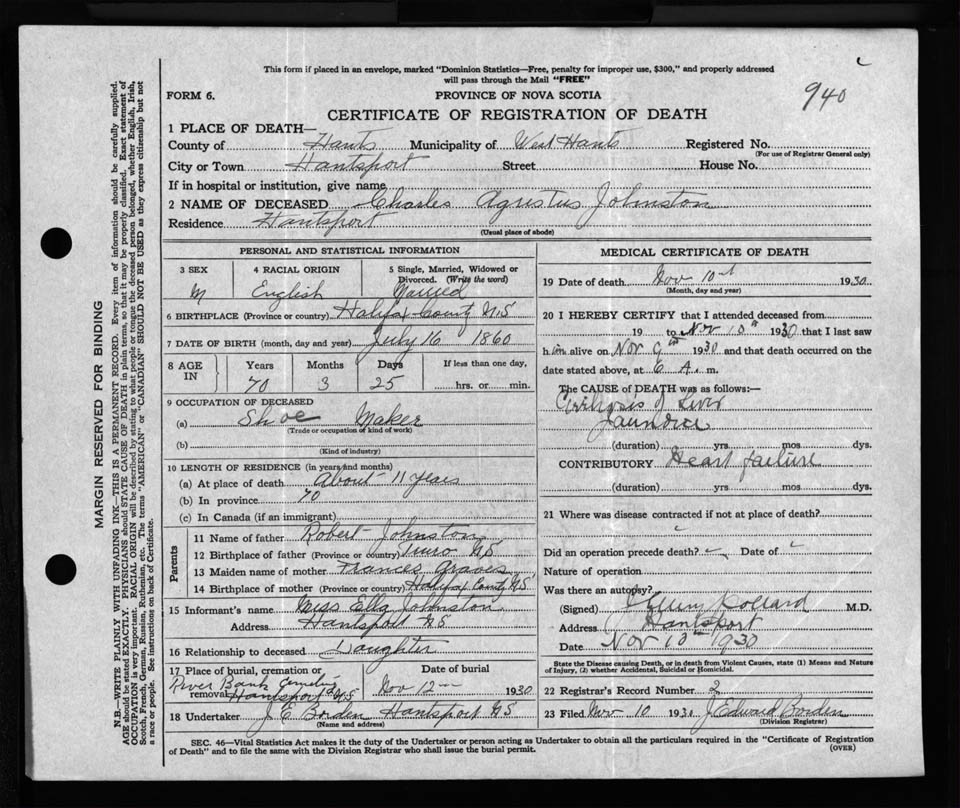 This form if placed in an envelope, marked "Dominion Statistics—Free, penalty for improper use, $300," and properly addressed
will pass through the Mail "FREE"
FORM 6. PROVINCE OF NOVA SCOTIA 940
CERTIFICATE OF REGISTRATION OF DEATH
1 PLACE OF DEATH—
County of Hants Municipality of West Hants Registered No.
(For use of Registrar General only)
City or Town Hantsport Street House No.
If in hospital or institution, give name
2 NAME OF DECEASED Charles Agustus Johnston
Residence Hantsport
(Usual place of abode)
PERSONAL AND STATISTICAL INFORMATION
3 SEX 4 RACIAL ORIGIN 5 Single, Married, Widowed or
Divorced. (Write the word)
M English Married
6 BIRTHPLACE (Province or country) Halifax County N.S
7 DATE OF BIRTH (month, day and year) July 16 1860
8 AGE IN Years Months Days If less than one day,
70 3 25 hrs. or min.
9 OCCUPATION OF DECEASED
(a) Shoe Maker
(Trade or occupation of kind of work)
(b)
(Kind of industry)
10 LENGTH OF RESIDENCE (in years and months)
(a) At place of death About 11 years
(b) In province 70
(c) In Canada (if an immigrant)
Parents
11 Name of father Robert Johnston
12 Birthplace of father (Province or country) Truro N.S
13 Maiden name of mother Frances Graves
14 Birthplace of mother (Province or country) Halifax County N.S
15 Informant's name Miss Ella Johnston
Address Hantsport N S
16 Relationship to deceased Daughter
17 Place of burial, cremation or removal Date of burial
River Bank Cemetery Hantsport N.S Nov 12 1930
18 Undertaker J E Borden Hantsport N S
(Name and address)
MEDICAL CERTIFICATE OF DEATH
19 Date of death Nov 10th 1930
(Month, day and year)
20 I HEREBY CERTIFY that I attended deceased from
19 to Nov 10th 1930 that I last saw
him alive on Nov 9th 1930 and that death occurred on the
date stated above, at 6 A. m.
The CAUSE OF DEATH was as follows:—
Cirrhosis of Liver
Jaundice
(duration) yrs. mos. dys.
CONTRIBUTORY Heart failure
(duration) yrs. mos. dys.
21 Where was disease contracted if not at place of death?
Did an operation precede death? Date of
Nature of operation
Was there an autopsy?
(Signed) M.D.
Address Hantsport
Date Nov 10th 1930
State the Disease causing Death, or in death from Violent Causes, state (1) Means and Nature
of Injury, (2) whether Accidental, Suicidal or Homicidal.
22 Registrar's Record Number 2
23 Filed Nov 10 1930 J Edward Borden
(Division Registrar)
SEC. 46—Vital Statistics Act makes it the duty of the Undertaker or person acting as Undertaker to obtain all the particulars required in the "Certificate of Registration
of Death" and to file the same with the Division Registrar who shall issue the burial permit. (OVER)
MARGIN RESERVED FOR BINDING
N.B.—WRITE PLAINLY WITH UNFADING INK—THIS IS A PERMANENT RECORD. Every item of information should be carefully supplied.
AGE should be stated EXACTLY. PHYSICIANS should STATE CAUSE OF DEATH in plain terms, so that it may be properly classified. Exact statement of
OCCUPATION is very important. RACIAL ORIGIN will be described by stating to what people or tongue the deceased person belonged, whether English, Irish,
Scotch, French, German, Russian, Ruthenian, etc. The terms "AMERICAN" or "CANADIAN" SHOULD NOT BE USED as they express citizenship but not
a race or people. See instructions on back of Certificate.